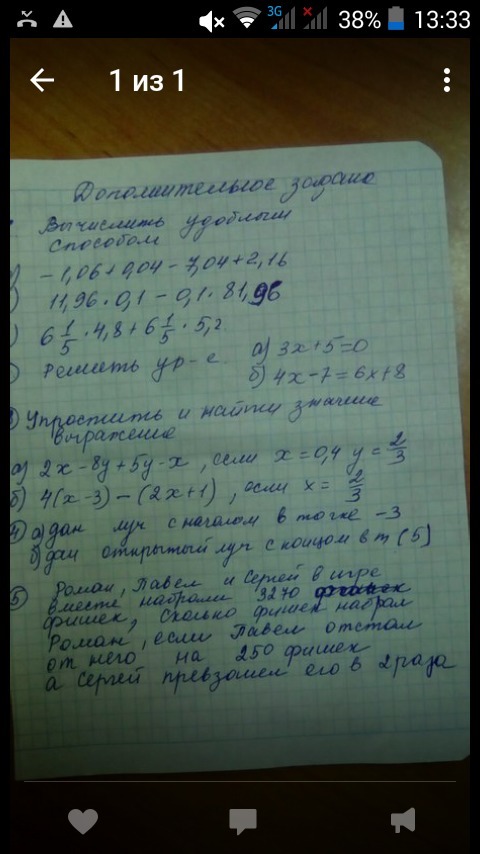 3G 38% 13:33
1 из 1
Дополнительное задано
Вычислить удобным
способом
) -1,06+0,04-7,04+2,16
) 11,96·0,1-0,1·81,96
) 6 1/5 · 4,8 + 6 1/5 · 5,2
) Решить ур-е. а) 3x+5=0
б) 4x-7=6x+8
) Упростить и найти значение
выражение
а) 2x-8y+5y-x, если x=0,4 y=2/3
б) 4(x-3)-(2x+1), если x=2/3
④ а) дан луч с началом в точке -3
б) дан открытый луч с концом в т (5]
⑤ Роман, Павел и Сергей в игре
вместе набрали 3270
фишек, сколько фишек набрал
Роман, если Павел отстал
от него на 250 фишек
а Сергей превзошел его в 2 раза